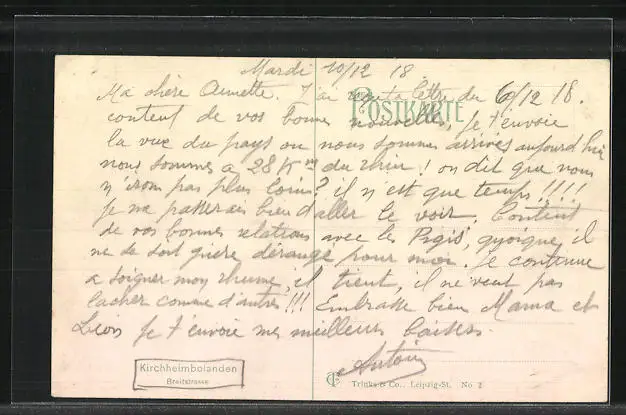 Mardi 10/12 18
Ma chère Annette. J'ai reçu ta lettre du 6/12 18.
POSTKARTE
content de vos bonnes nouvelles, je t'envoie
la vue du pays ou nous sommes arrivés aujourd'hui
nous sommes a 28 Km du Rhin! on dit que nous
n'irons pas plus loin? il n'est que temps!!!!
je me passerais bien d'aller le voir. Content
de vos bonnes relations avec les Pigis, quoique il
ne se soit guère dérangé pour moi. je continue
a soigner mon rhume, il tient, il ne veut pas
lacher comme d'autres!!! Embrasse bien Mama et
Léon je t'envoie mes meilleurs baisers.
Antoine
Kirchheimbolanden
Breitstrasse
Trinks & Co., Leipzig-St. No 2